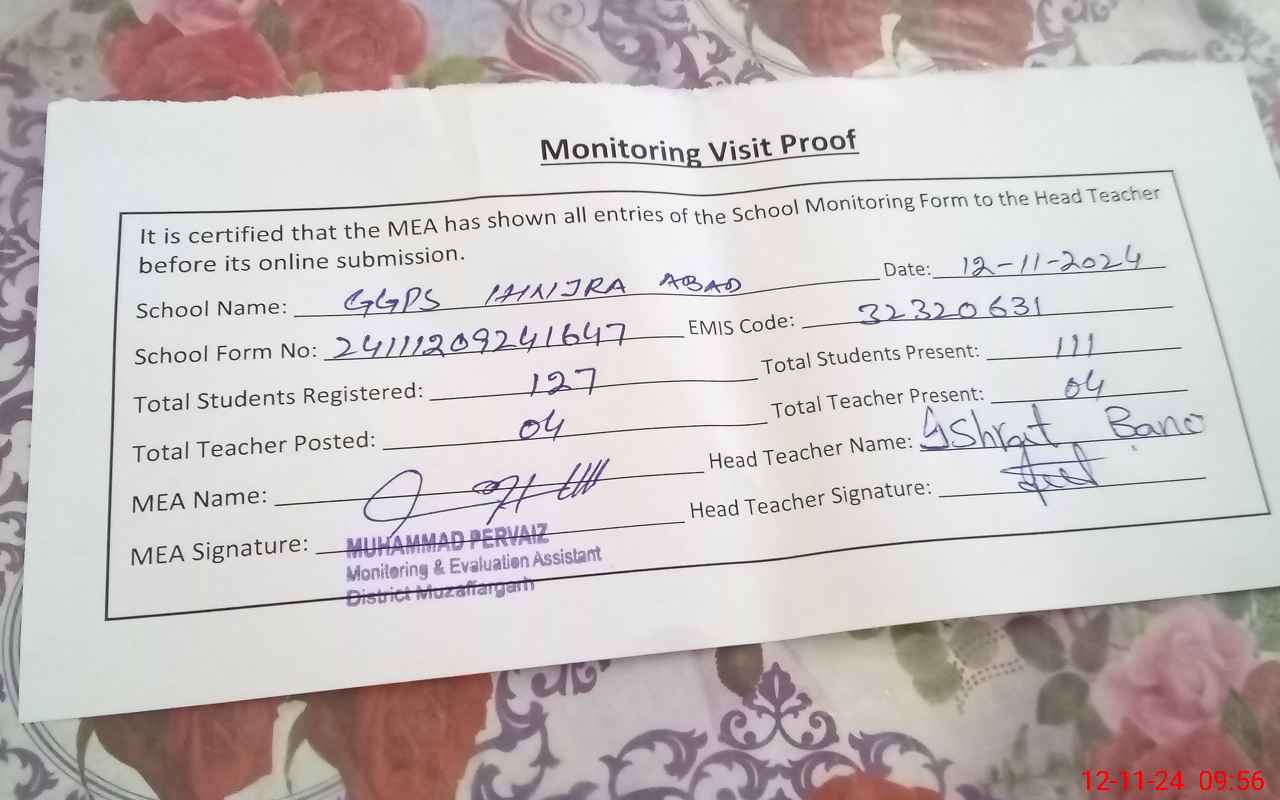 Monitoring Visit Proof
It is certified that the MEA has shown all entries of the School Monitoring Form to the Head Teacher
before its online submission.
School Name: GGPS ABAD Date: 12-11-2024
School Form No: 24111209241647 EMIS Code: 32320631
Total Students Registered: 127 Total Students Present: 111
Total Teacher Posted: 04 Total Teacher Present: 04
MEA Name: Head Teacher Name: Bano
MEA Signature: Head Teacher Signature:
MUHAMMAD PERVAIZ
Monitoring & Evaluation Assistant
District Muzaffargarh
12-11-24 09:56